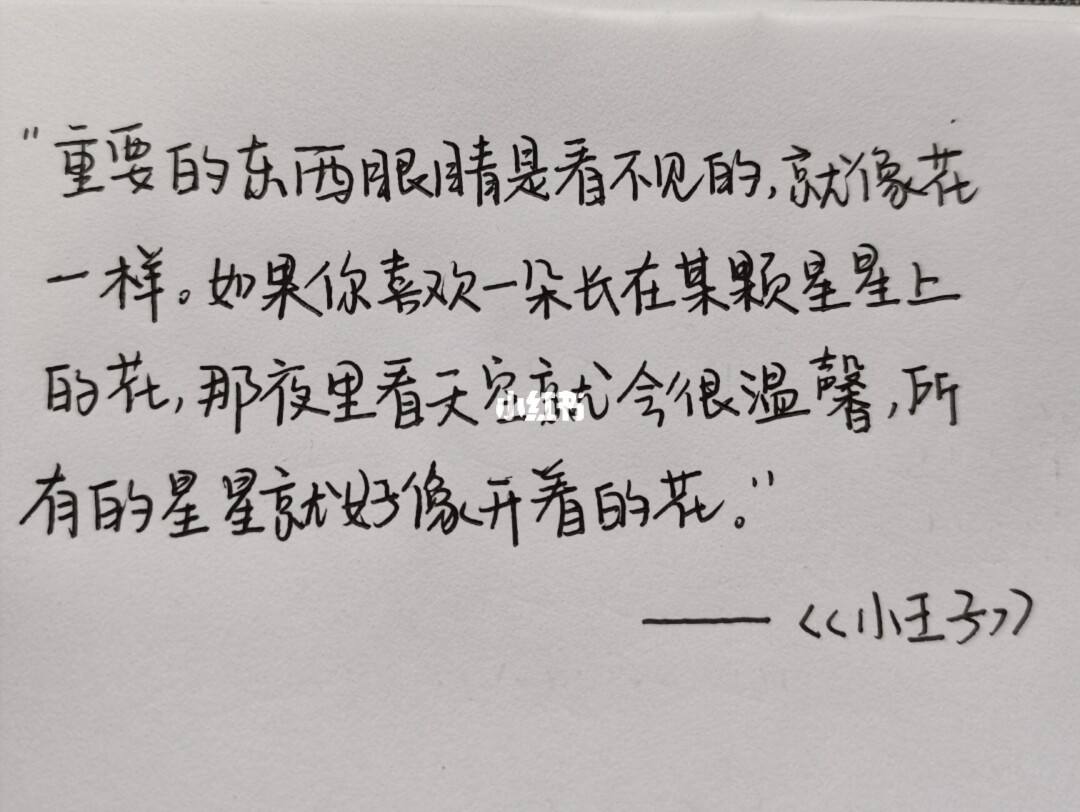 “重要的东西眼睛是看不见的,就像花
一样。如果你喜欢一朵长在某颗星星上
的花,那夜里看天空就会很温馨,所
有的星星就好像开着的花。”
——《小王子》
小红书